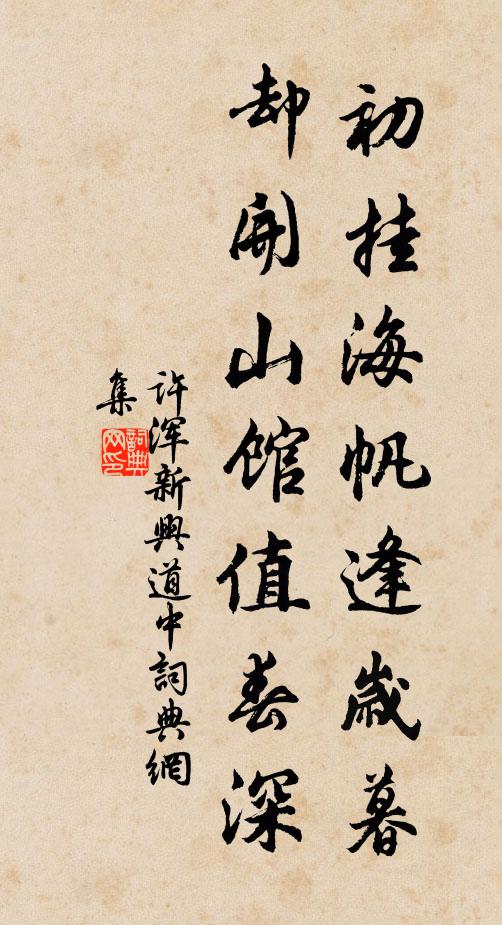 初挂海帆逢歲暮
却開山館值春深
許渾新興道中詞典網
集
詞典
网印